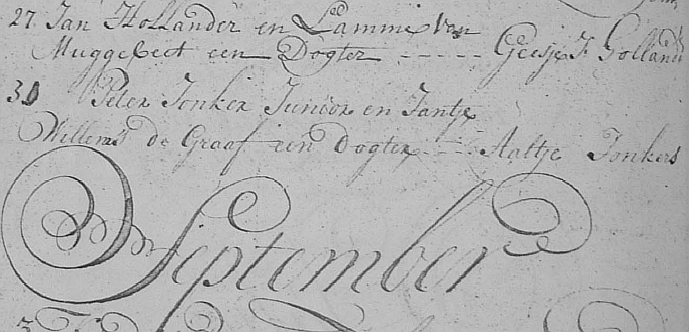 27. Jan Hollander en Lammi Van
Muggebeet een Dogter ----- Geesje J. Hollander
31 Peter Jonker Junior en Jantje
Willems de Graaf een Dogter ---- Aaltje Jonkers
September
3